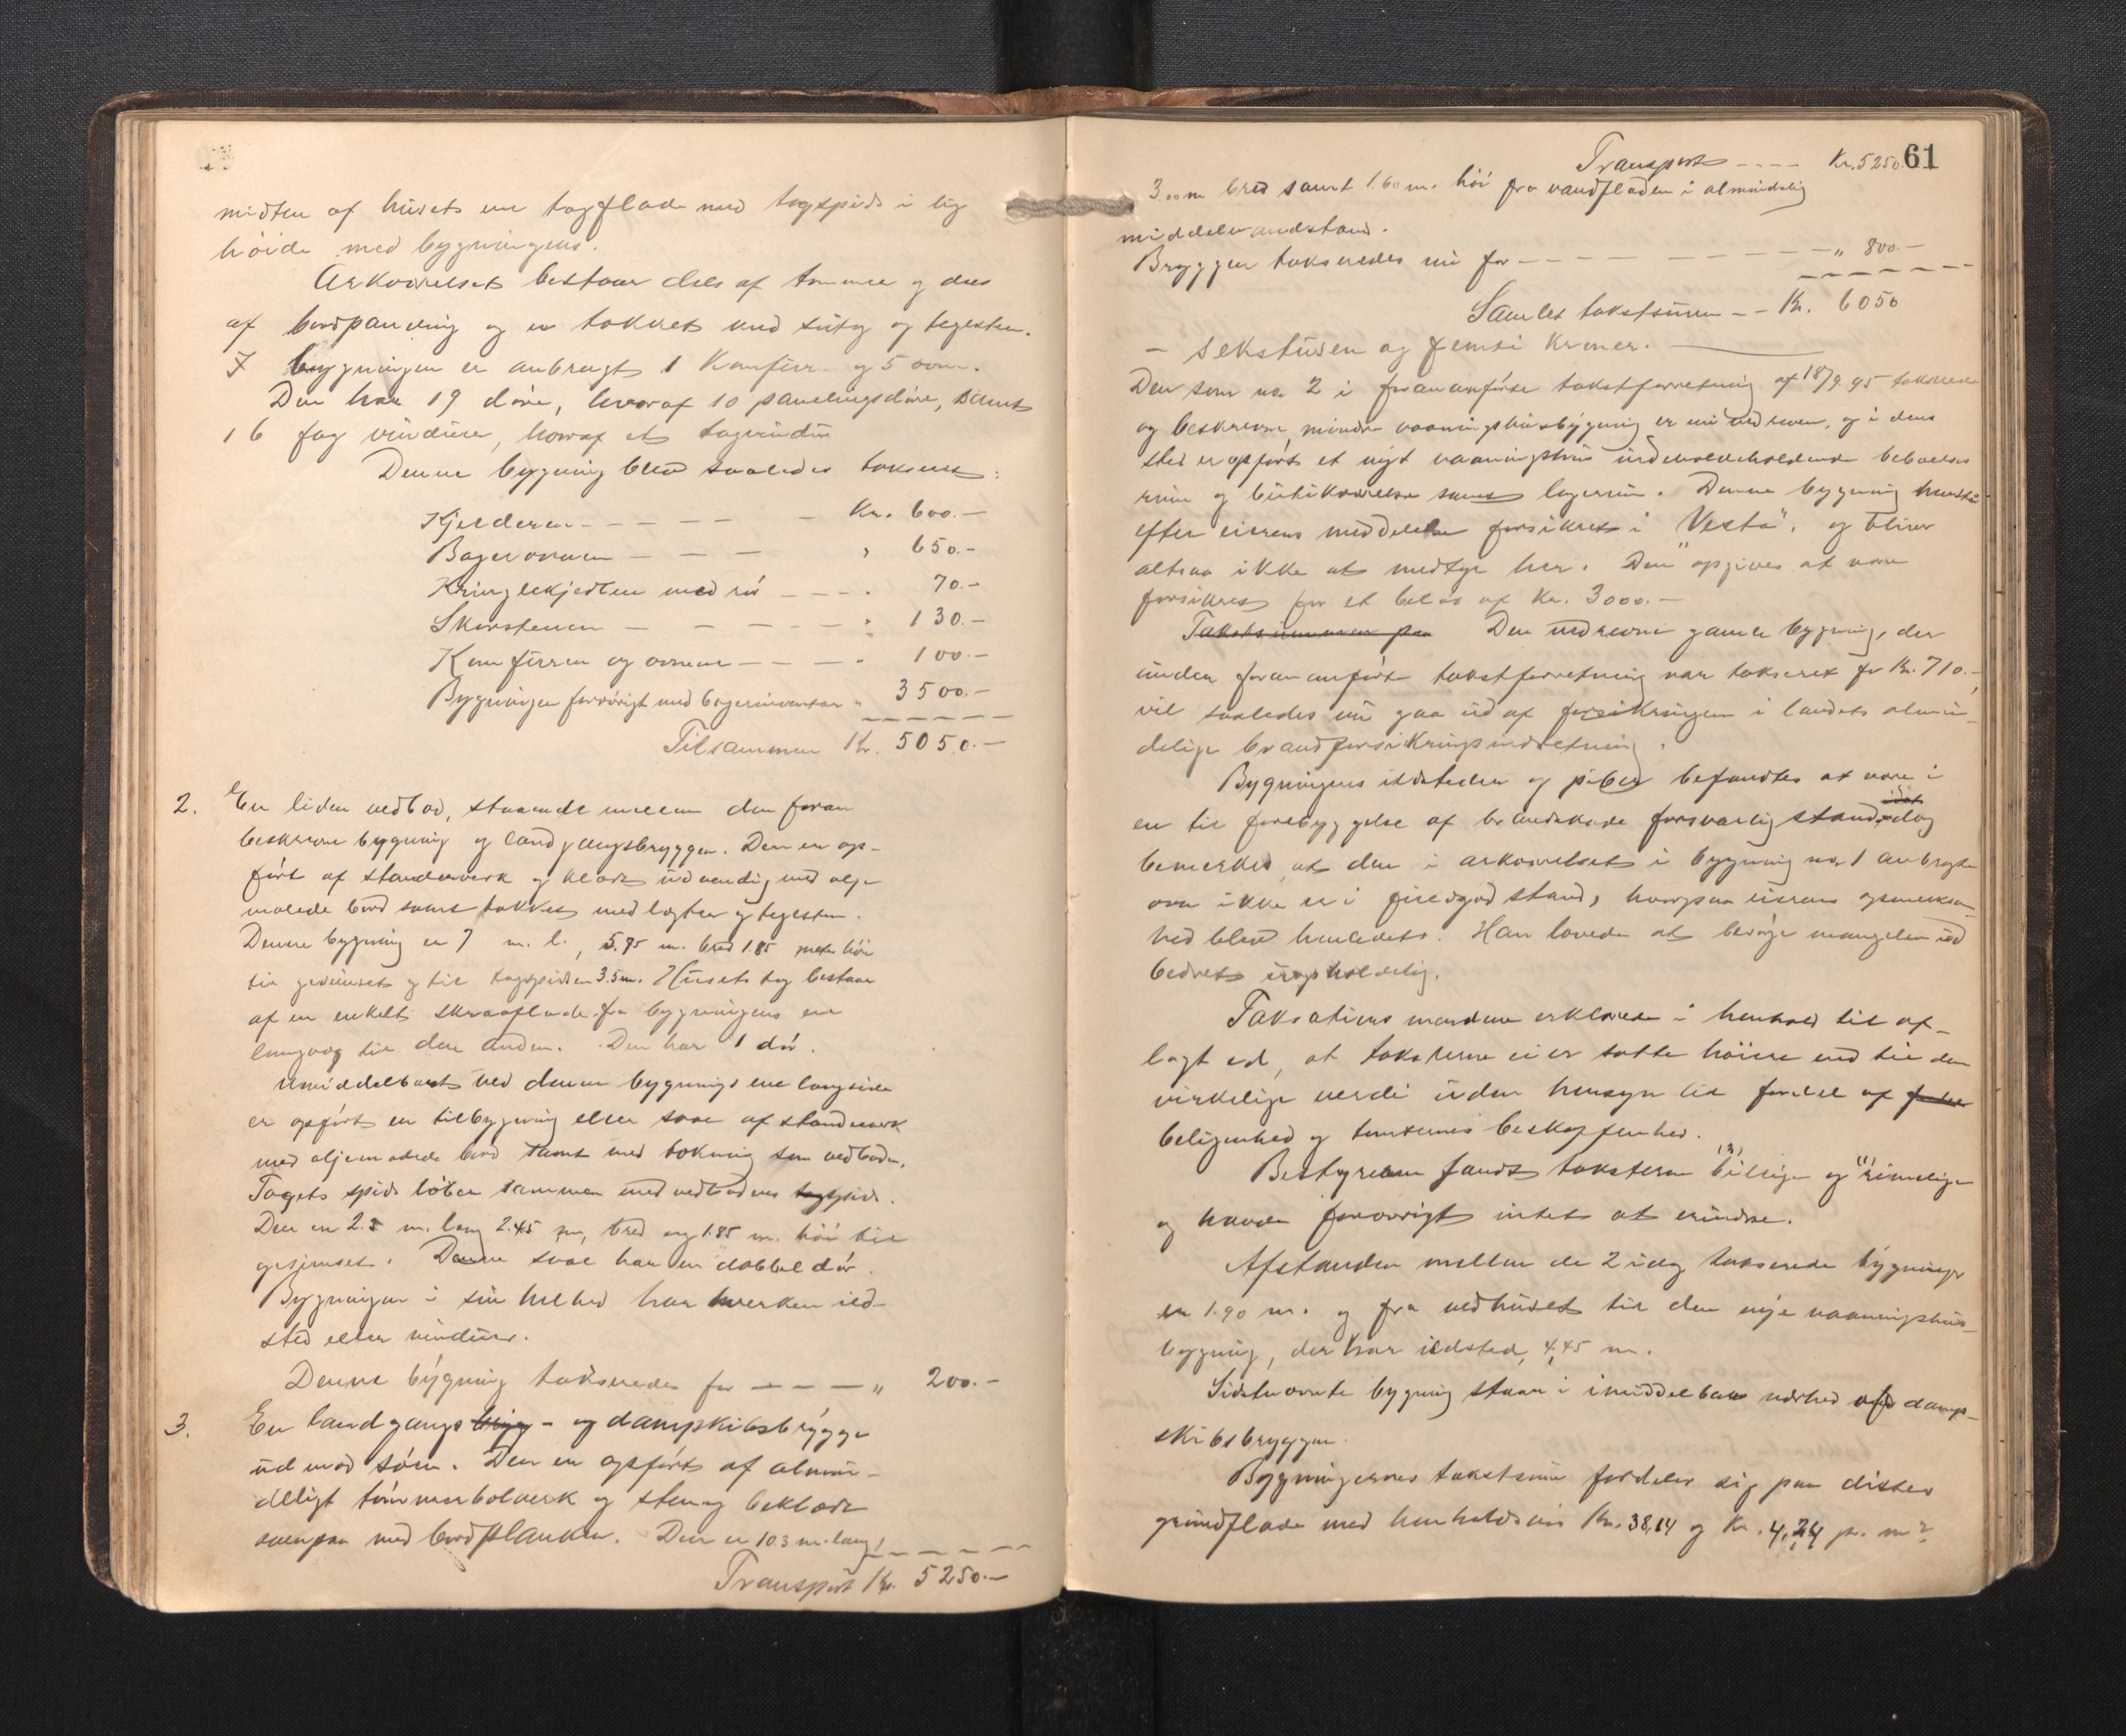 midten af husets ene tagflade med tagspids i lig
høide med bygningens.
Arkværelset bestaar dels af tømmer og dels
af bordpanling og er tækket med sutag og teglsten.
I bygningen er anbragt 1 Komfur og 5 ovne.
Den har 19 døre, hvoraf 10 panelingsdøre, samt
16 fag vinduer, hvoraf et tagvindu
Denne bygning blev saaledes takseret:
Kjelderen - - - - - - Kr. 600.-
Bagerovnen - - - " 650.-
Kringlekjedlen med rør - - - . 70.-
Skorstenen - - - - - " 130.-
Komfuren og ovnene - - - - . 100.-
Bygningen forøvrigt med bagerinventar " 3500.-
Tilsammen Kr. 5050.-
2. En liden vedbod, staaende mellem den foran
beskrevne bygning og landgangsbryggen. Den er op-
ført af standerverk og klædt udvendig med olje
malede bord samt tækket med lægter og teglsten.
Denne bygning er 7 m. l., 5.75 m. bred 1.85 meter høi
til gesimset og til tagspidsen 3.5 m. Husets tag bestaar
af en enkelt skraaflade fra bygningens ene
langvæg til den anden. Den har 1 dør.
Umiddelbart ved denne bygnings ene langside
er opført en tilbygning eller sval af standerverk
med oljemalede bord samt med tækning som vedboden.
Tagets spids løber sammen med vedbodens tagspids.
Den er 2.5 m. lang 2.45 m, bred og 1.85 m. høi til
gesimset. Denne sval har en dobbel dør.
Bygningen i sin helhed har hverken ild-
sted eller vinduer.
Denne bygning takseredes for - - - " 200.-
3. En landgangs brygg - og dampskibsbrygge
ud mod søen. Den er opført af almin-
deligt tømmerbolverk og sten og beklædt
ovenpaa med bordplanker. Den er 10.3 m. lang,
Transport Kr. 5250.-
61
Transport - - - - Kr. 5250
3.00 m bred samt 1.60 m. høi fra vandfladen i almindelig
middelvandstand.
Bryggen takseredes nu for - - - - - - - - " 800.-
Samlet takstsum - - Kr. 6050
- sekstusen og femti Kroner. -
Den som no 2 i forananførte takstforretning af 18/9 95 takserede
og beskrevne, mindre vaaningshusbygning er nu nedreven, og i dens
sted er opført et nyt vaaningshus indeholdeholdende beboelses
rum og butikværelse samt lagerrum. Denne bygning
efter eierens meddelelse forsikret i "Vesta". og bliver
altsaa ikke at medtage her. Den opgives at være
forsikret for et beløb af Kr. 3000.-
Takstsummen paa Den nedrevne gamle bygning, der
under forananført takstforretning var takseret for Kr. 710.-,
vil saaledes nu gaa ud af forsikringen i landets almin-
delige brandforsikringsindretning.
Bygningens ildsteder og piber befandtes at være i
en til forebyggelse af brandskade forsvarlig stand, dog
bemerkes, at den i arkværelset i bygning no 1 anbragte
ovn ikke er i fuldgod stand, hvorpaa eierens opmerksom-
hed blev henledet. Han lovede at besørge mangelen ud
bedret uopholdelig.
Taksationsmændene erklærede i henhold til af-
lagt ed, at taksterne ei er satte høiere end til den
virkelige verdi uden hensyn til fordel af
beligenhed og tomternes beskaffenhed.
Bestyreren fandt taksterne (2) billige og (1) rimelige
og havde forøvrigt intet at erindre.
Afstanden mellem de 2 idag takserede bygninger
er 1.90 m. og fra vedhuset til den nye vaaningshus-
bygning, der har ildsted, 4,45 m.
Sidstnævnte bygning staar i umiddelbar nærhed af damp-
skibsbryggen.
Bygningernes takstsum fordeler sig paa disses
grundflade med henholdsvis Kr. 38,14 og Kr. 4,24 pr. m².